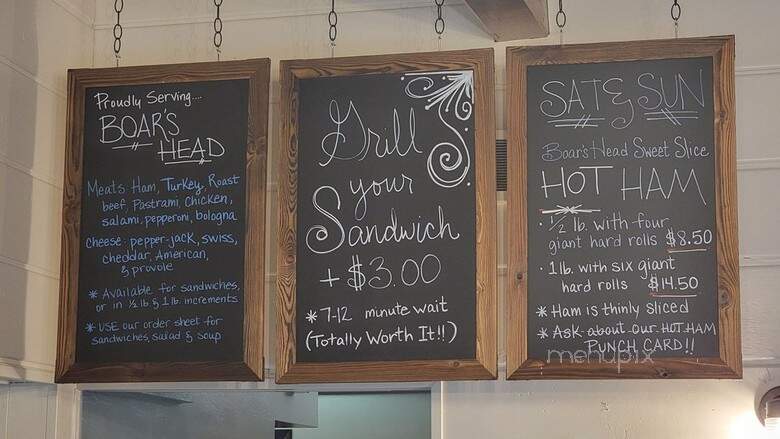 Proudly Serving....
BOAR'S
HEAD
Meats: Ham, Turkey, Roast
beef, Pastrami, Chicken,
salami, pepperoni, bologna
cheese: pepper-jack, swiss,
cheddar, American,
& provole
* Available for sandwiches,
or in ½ lb. & 1 lb. increments
* USE our order sheet for
sandwiches, salad & soup
Grill
your
Sandwich
+ $3.00
* 7-12 minute wait
(Totally Worth It!!)
SAT & SUN
Boar's Head Sweet Slice
HOT HAM
· ½ lb. with four
giant hard rolls $8.50
· 1 lb. with six giant
hard rolls $14.50
* Ham is thinly sliced
* Ask about our HOT HAM
PUNCH CARD!!
menupix